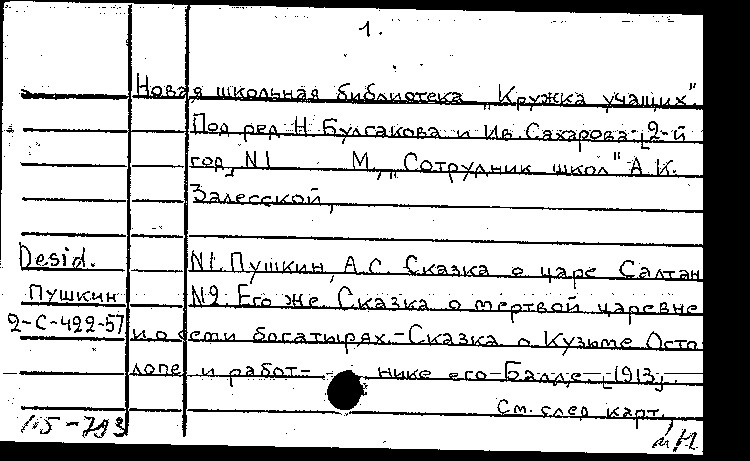 1.
Новая школьная библиотека „Кружка учащих".
Под ред Н. Булгакова и Ив. Сахарова. [2-й
год] N1 М., „Сотрудник школ" А.К.
Залесской,
Desid. N1. Пушкин, А.С. Сказка о царе Салтан
Пушкин N2. Его же. Сказка о мертвой царевне
2-С-422-57 и о семи богатырях.-Сказка о Кузьме Осто
лопе и работ- нике его Балде. [1913].
См. след карт.
115-793